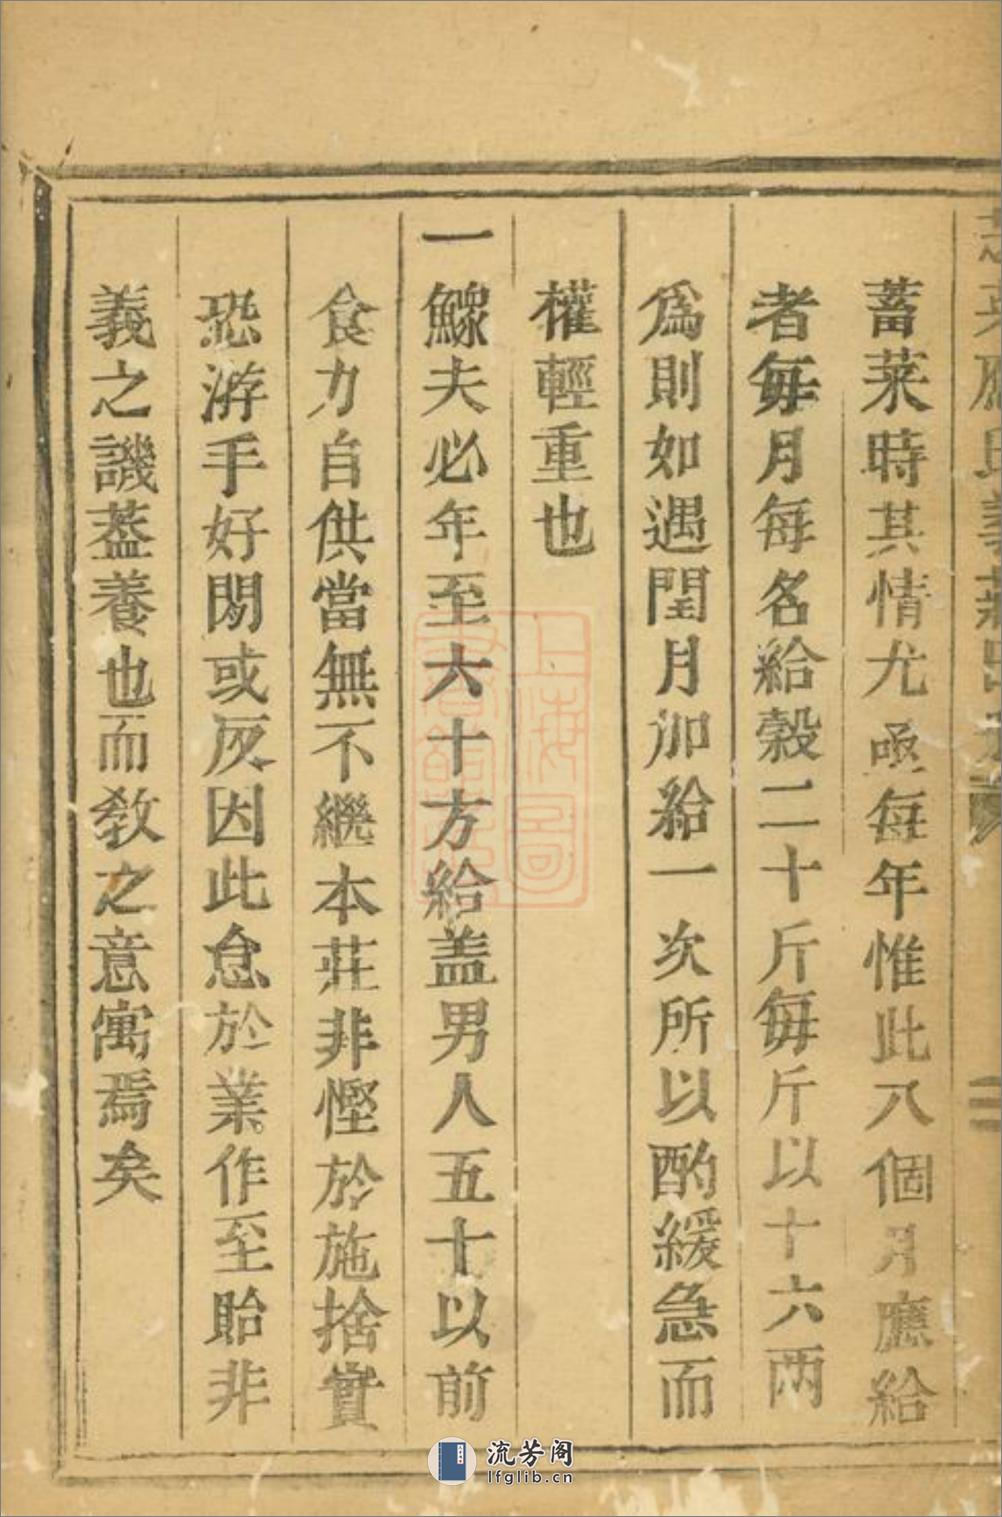 蓄菜時其情尤亟每年惟此八個月應給
者每月每名給穀二十斤每斤以十六兩
為則如遇閏月加給一次所以酌緩急而
權輕重也
一鰥夫必年至六十方給盖男人五十以前
食力自供當無不繼本莊非慳於施捨實
恐游手好閒或反因此怠於業作至貽非
義之譏葢養也而教之意寓焉矣
上海圖
流芳阁
lfglib.cn